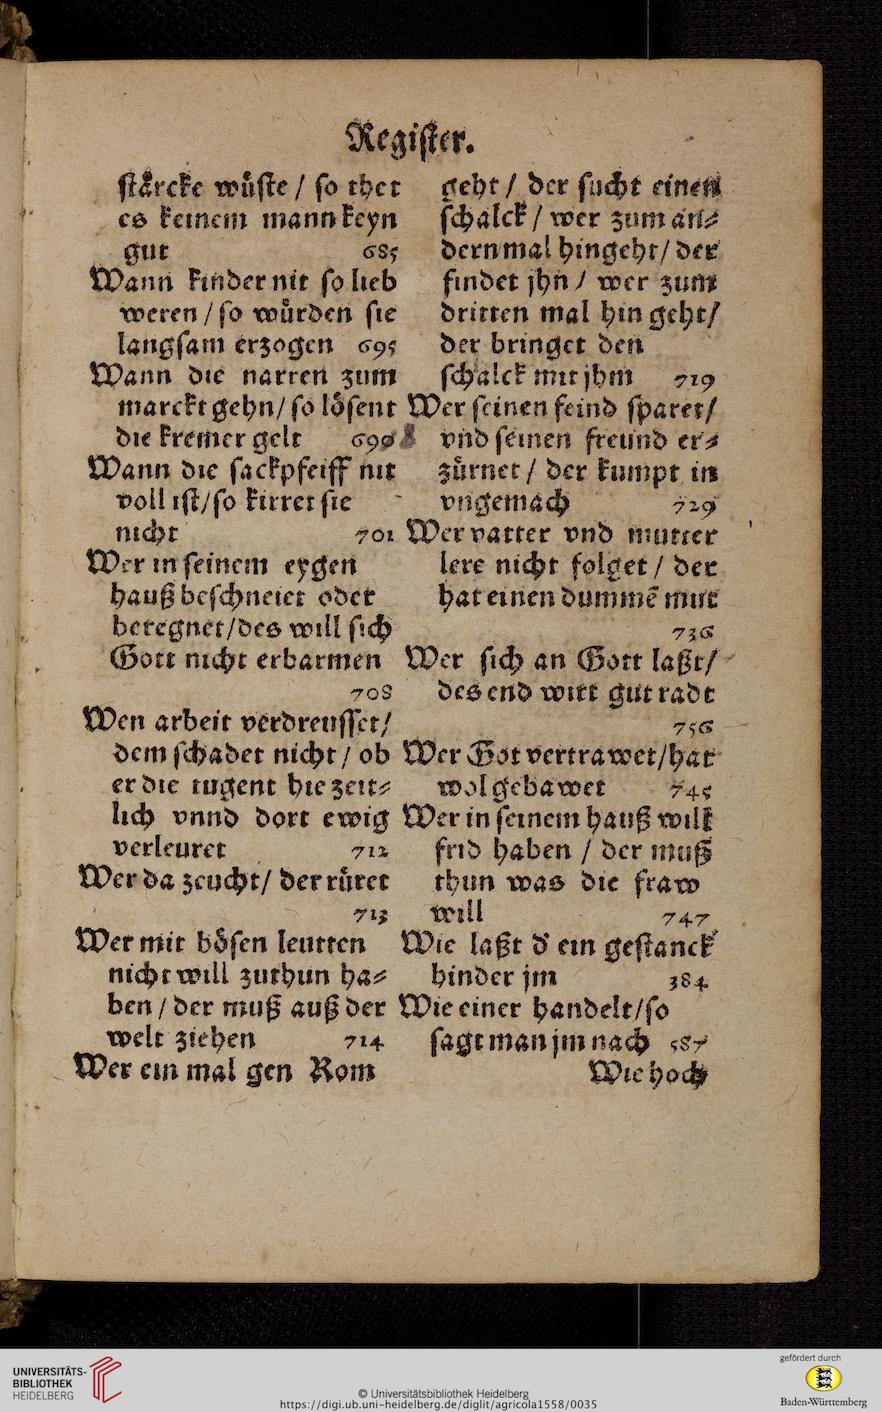 Register.
stårcke wůste / so thet
es keinem mann keyn
gut 685
Wann kinder nit so lieb
weren / so wůrden sie
langsam erzogen 695
Wann die narren zum
marckt gehn / so lösent
die kremer gelt
Wann die sackpfeiff nit
voll ist / so kirret sie
nicht 701
Wer in seinem eygen
hauß beschneiet oder
beregnet / des will sich
Gott nicht erbarmen
708
Wen arbeit verdreusset /
dem schadet nicht / ob
er die tugent hie zeit⸗
lich vnnd dort ewig
verleuret 712
Wer da zeucht / der růret
713
Wer mit bösen leutten
nicht will zuthun ha⸗
ben / der muß auß der
welt ziehen 714
Wer ein mal gen Rom
geht / der sucht einen
schalck / wer zum an⸗
dern mal hingeht / der
findet jhn / wer zum
dritten mal hin geht /
der bringet den
schalck mit jhm 719
Wer seinen feind sparet /
vnd seinen freund er⸗
zůrnet / der kumpt in
vngemach 729
Wer vatter vnd mutter
lere nicht folget / der
hat einen dummē mut
736
Wer sich an Gott laßt /
des end wirt gut radt
756
Wer Got vertrawet / hat
wol gebawet 745
Wer in seinem hauß will
frid haben / der muß
thun was die fraw
will 747
Wie laßt d' ein gestanck
hinder jm 384
Wie einer handelt / so
sagt man jm nach 587
Wie hoch
UNIVERSITÄTS-
BIBLIOTHEK
HEIDELBERG
© Universitätsbibliothek Heidelberg
https://digi.ub.uni-heidelberg.de/diglit/agricola1558/0035
gefördert durch
Baden-Württemberg